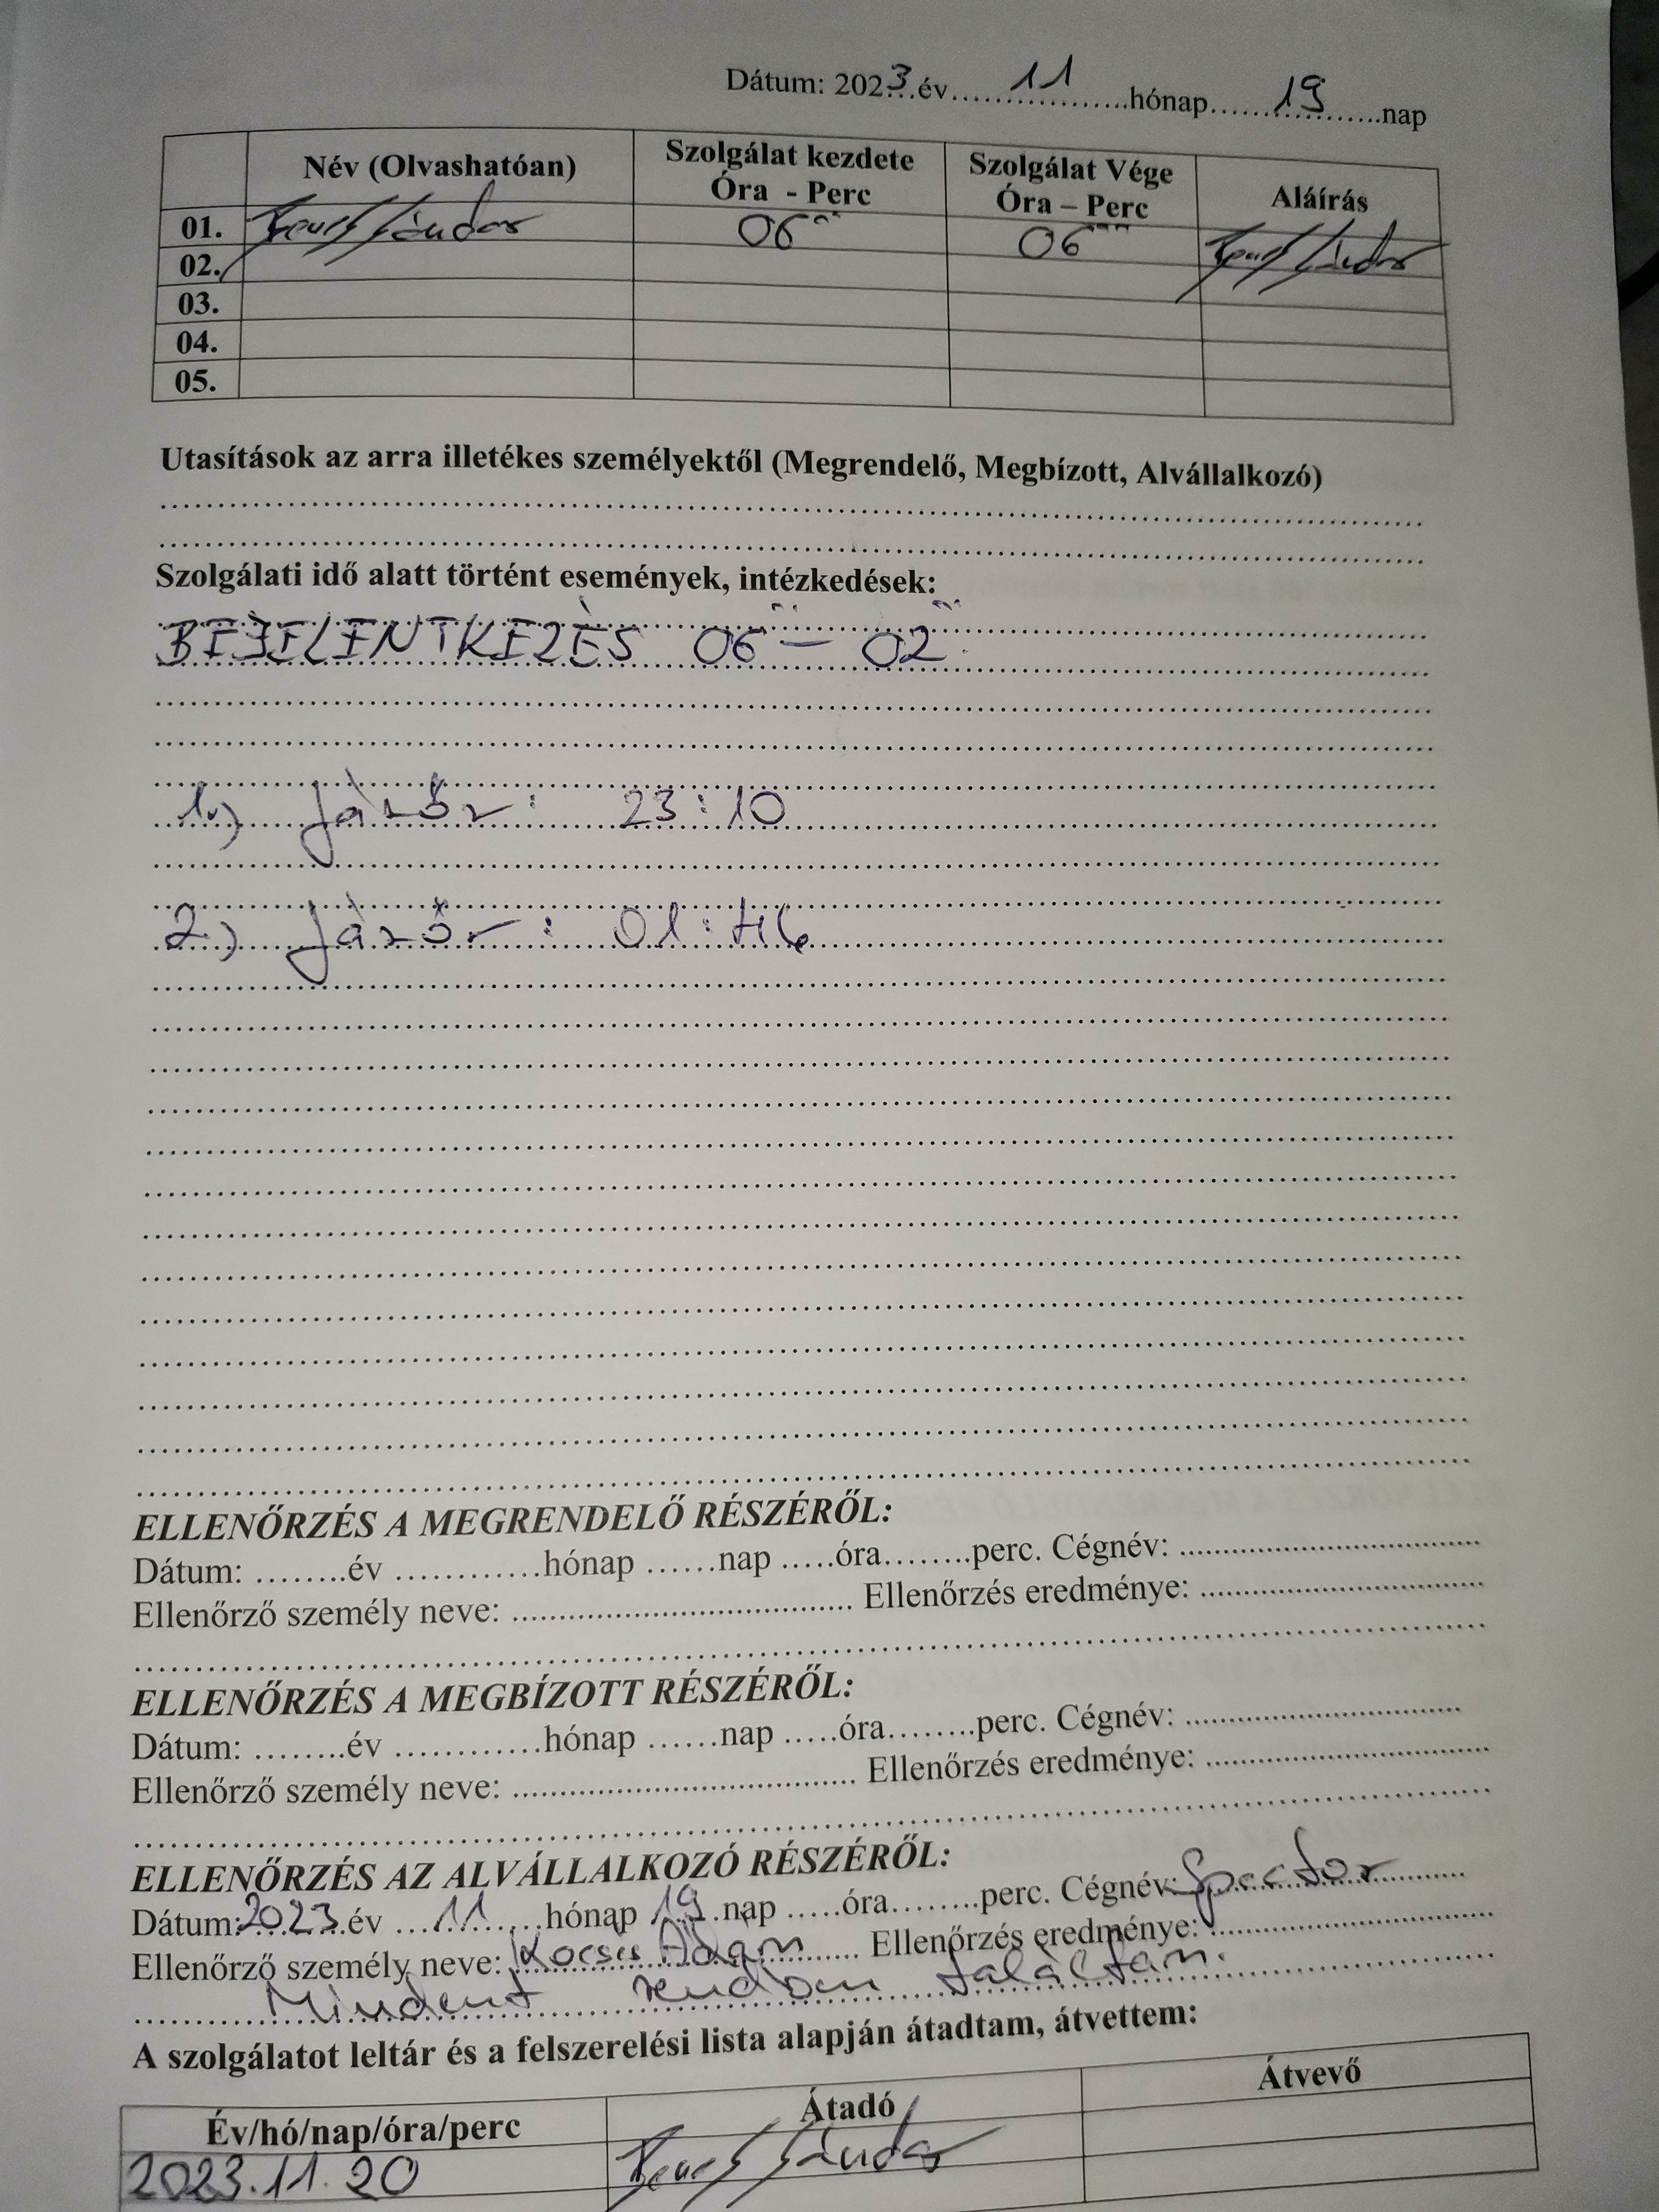 Dátum: 2023 év 11 hónap 19 nap
Név (Olvashatóan) Szolgálat kezdete Óra - Perc Szolgálat Vége Óra – Perc Aláírás
01. Sándor 06⁰⁰ 06⁰⁰ Sándor
02.
03.
04.
05.
Utasítások az arra illetékes személyektől (Megrendelő, Megbízott, Alvállalkozó)
Szolgálati idő alatt történt események, intézkedések:
BEJELENTKEZÉS 06⁰⁰ – 02⁰⁰
1.) Járőr: 23:10
2.) Járőr: 01:46
ELLENŐRZÉS A MEGRENDELŐ RÉSZÉRŐL:
Dátum: ........év ............hónap ......nap .....óra........perc. Cégnév: ................................
Ellenőrző személy neve: .................................... Ellenőrzés eredménye: ..............................
ELLENŐRZÉS A MEGBÍZOTT RÉSZÉRŐL:
Dátum: ........év ............hónap ......nap .....óra........perc. Cégnév: ................................
Ellenőrző személy neve: .................................... Ellenőrzés eredménye: ..............................
ELLENŐRZÉS AZ ALVÁLLALKOZÓ RÉSZÉRŐL:
Dátum: 2023 év 11 hónap 19 nap .....óra........perc. Cégnév: Spector
Ellenőrző személy neve: Kocsis Ádám Ellenőrzés eredménye:
Mindent rendben találtam.
A szolgálatot leltár és a felszerelési lista alapján átadtam, átvettem:
Év/hó/nap/óra/perc Átadó Átvevő
2023.11.20 Sándor